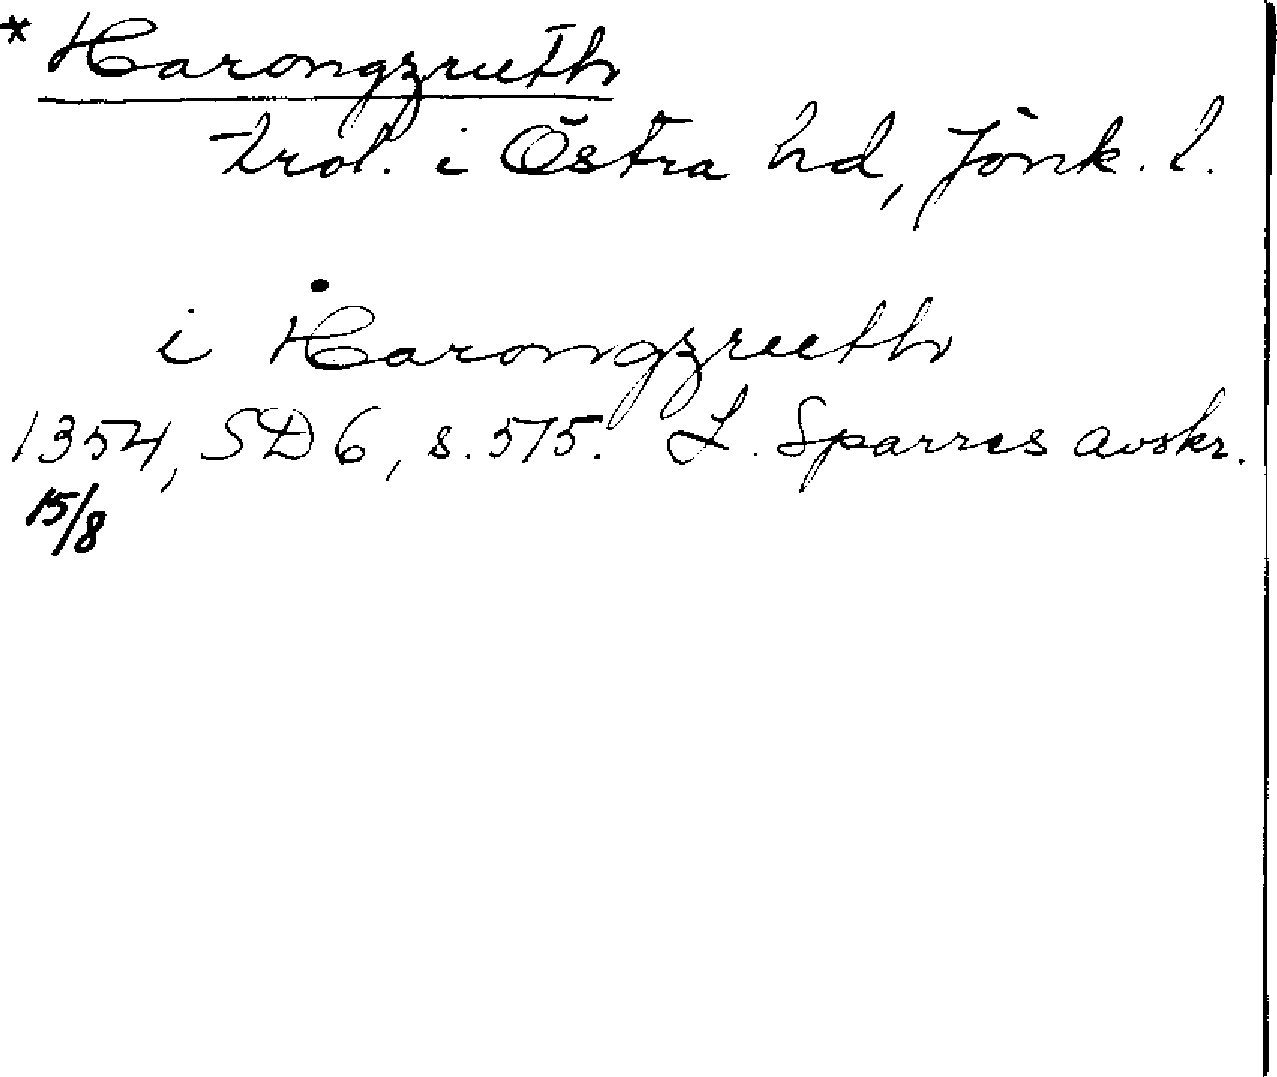 * Harongzrueth
trol. i Östra hd, Jönk. l.
i Harongzrueth
1354, SD 6, s. 575. L. Sparres avskr.
15/8